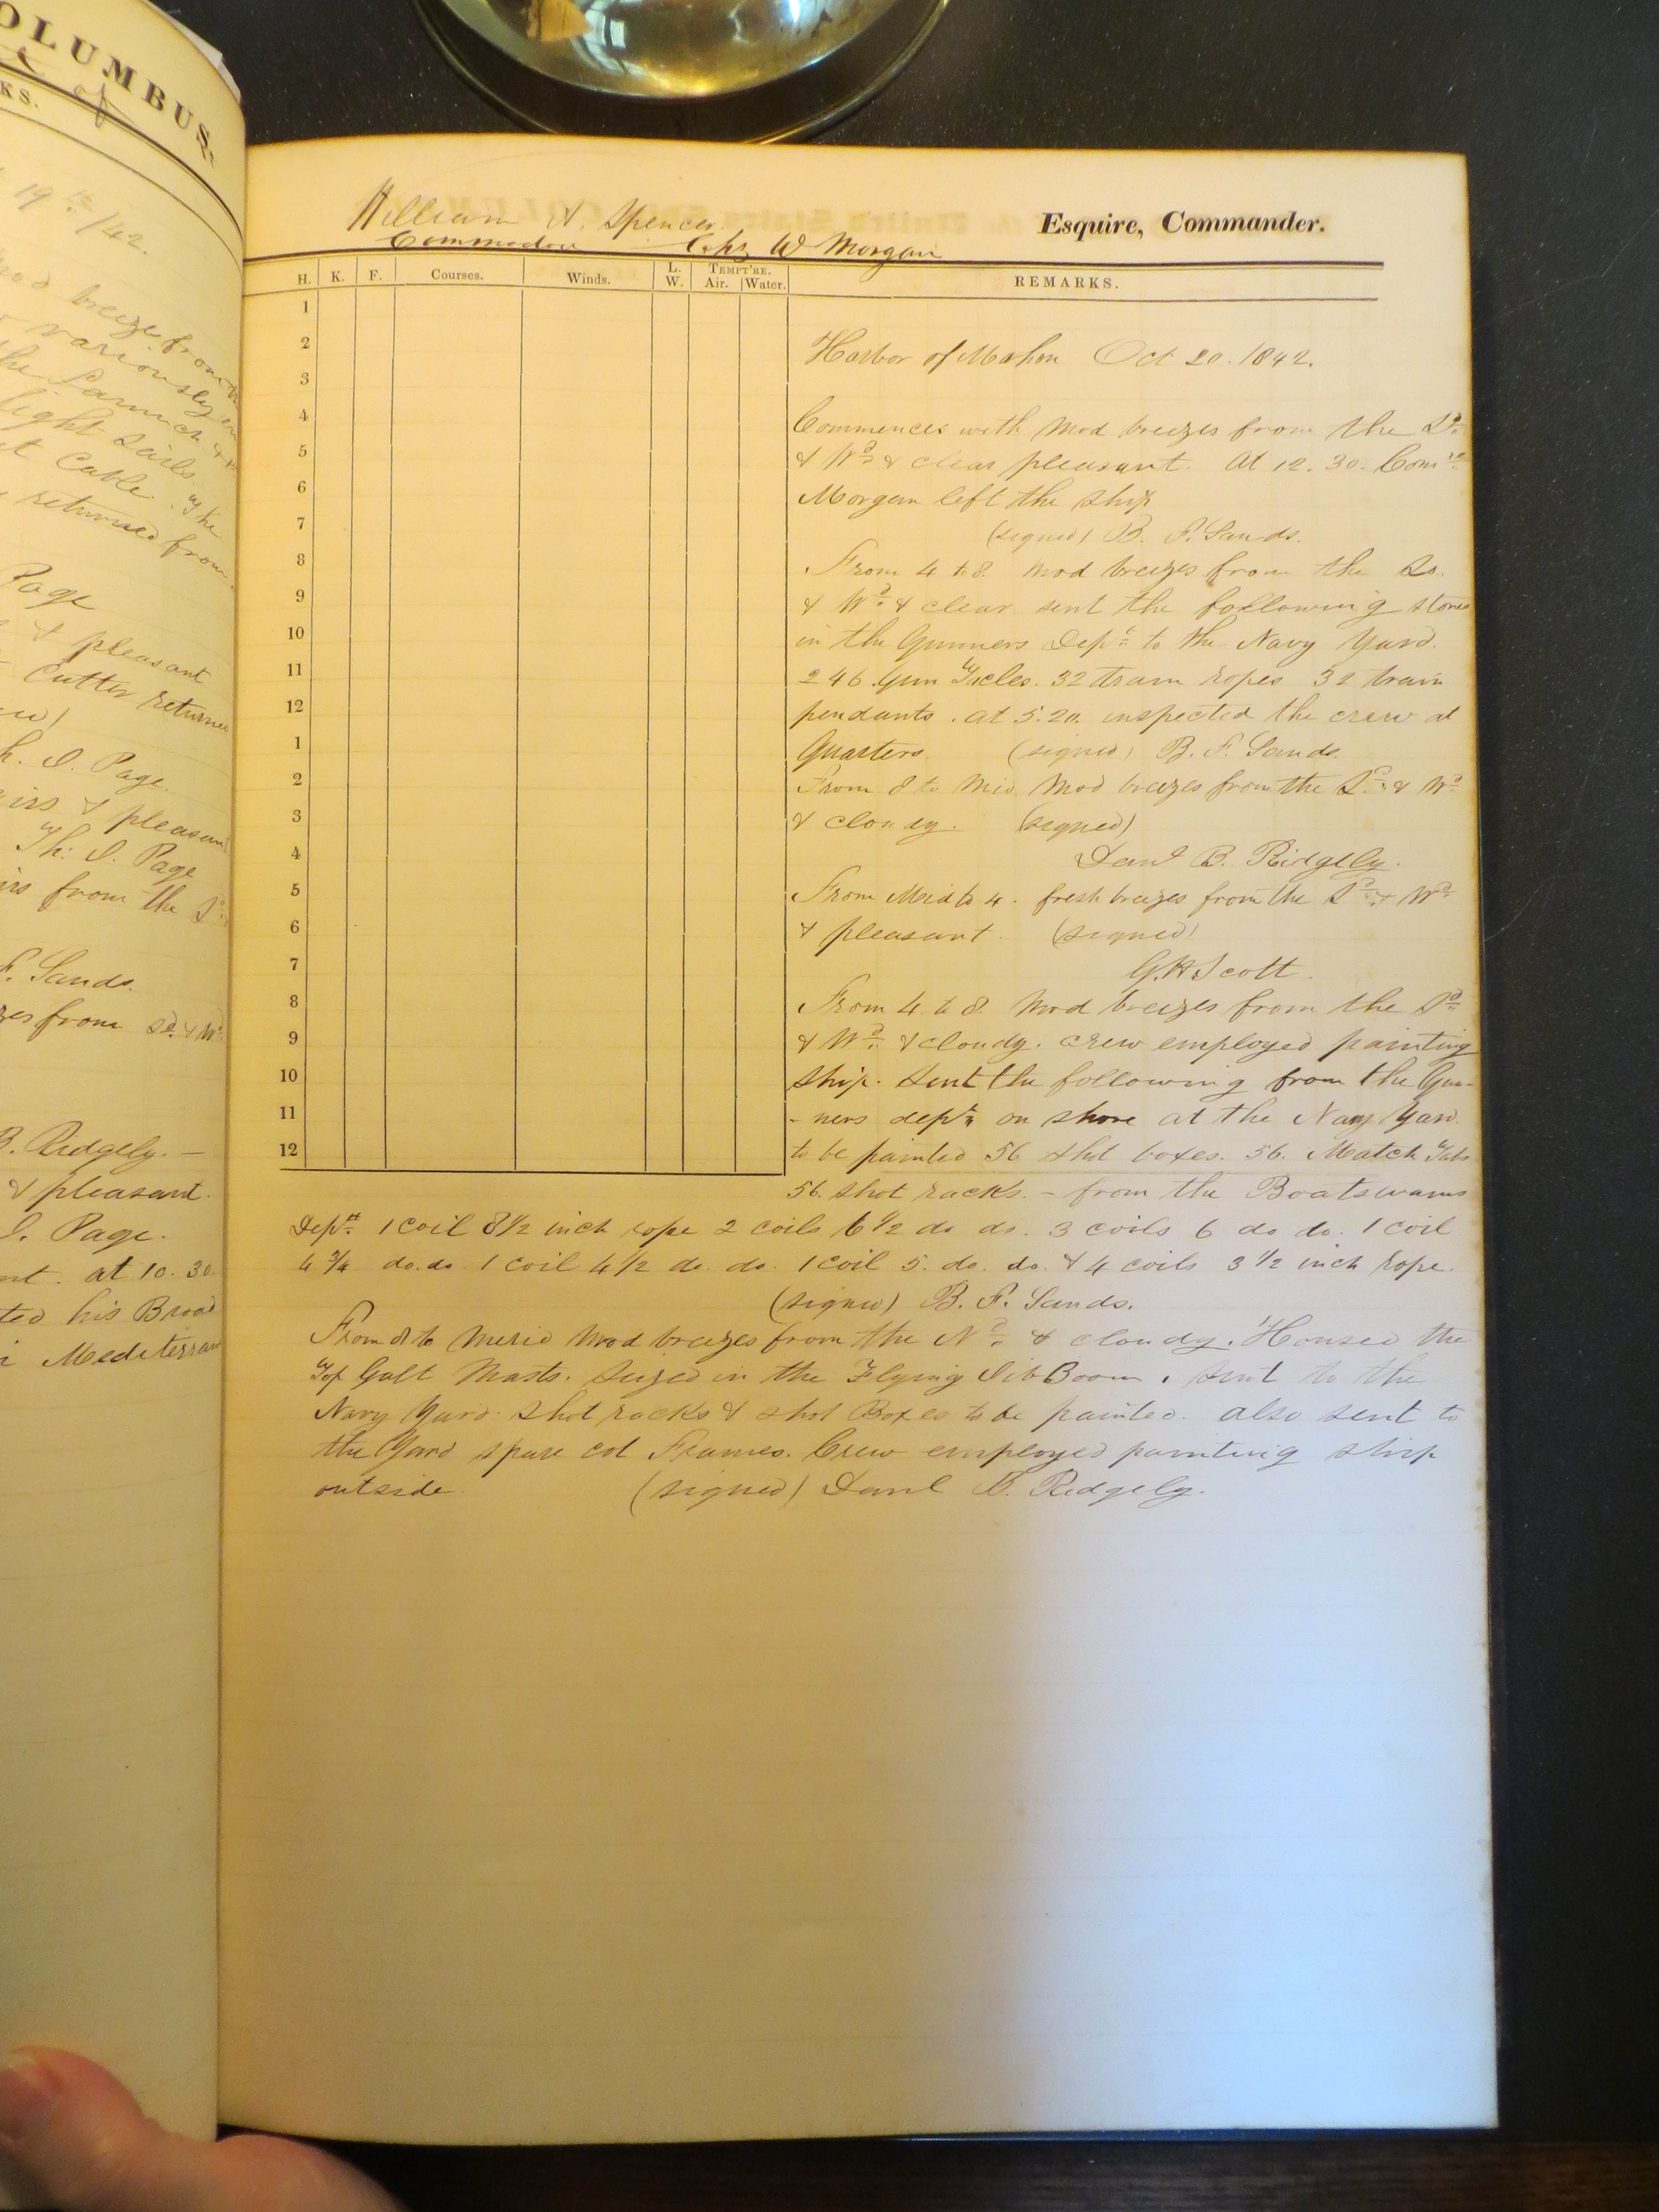 OLUMBUS,
KS.
19th /42.
breeze from
variously
the Launch
light sails
Cable. The
returned from
Page
& pleasant
Cutter returned
h. J. Page.
irs & pleasant
Th: J. Page
irs from the Sd
F. Sands.
zes from Sd. & Wd
B. Ridgely. —
& pleasant.
J. Page.
nt. at 10. 30
ted his Broad
Mediterran
William A. Spencer.
Esquire, Commander.
Commodore Chs W Morgan
H. K. F. Courses. Winds. L. W. TEMPT'RE. Air. Water. REMARKS.
1
2
3
4
5
6
7
8
9
10
11
12
1
2
3
4
5
6
7
8
9
10
11
12
Harbor of Mahon Oct 20. 1842.
Commences with Mod breezes from the Sd.
& Wd. & clear pleasant. At 12. 30. Comre
Morgan left the ship
(signed) B. F. Sands.
From 4 to 8. Mod breezes from the So.
& Wd. & clear sent the following stores
in the Gunners Dept. to the Navy Yard.
246 Gun Tacles. 32 train ropes 32 train
pendants. at 5. 20. inspected the crew at
Quarters. (signed) B. F. Sands.
From 8 to Mid. Mod breezes from the Sd. & Wd.
& cloudy. (signed)
Danl B. Ridgely.
From Mid to 4. fresh breezes from the Sd. & Wd.
& pleasant. (signed)
G. H Scott.
From 4 to 8. Mod breezes from the Sd.
& Wd. & cloudy. crew employed painting
ship. Sent the following from the Gun-
-ners dept. on shore at the Navy Yard.
to be painted 56 shot boxes. 56. Match Tubs
56. shot racks. – from the Boatswains
Dept. 1 coil 8 1/2 inch rope 2 coils 6 1/2 do do. 3 coils 6 do do. 1 coil
4 3/4 do. do. 1 coil 4 1/2 do. do. 1 coil 5. do. do. & 4 coils 3 1/2 inch rope.
(signed) B. F. Sands.
From 8 to Merid Mod breezes from the Nd. & cloudy. Housed the
Top Gallt Masts. Seized in the Flying Jib Boom. Sent to the
Navy Yard. Shot racks & shot Boxes to be painted. also sent to
the Yard spare cot Frames. Crew employed painting ship
outside. (signed) Danl B. Ridgely.